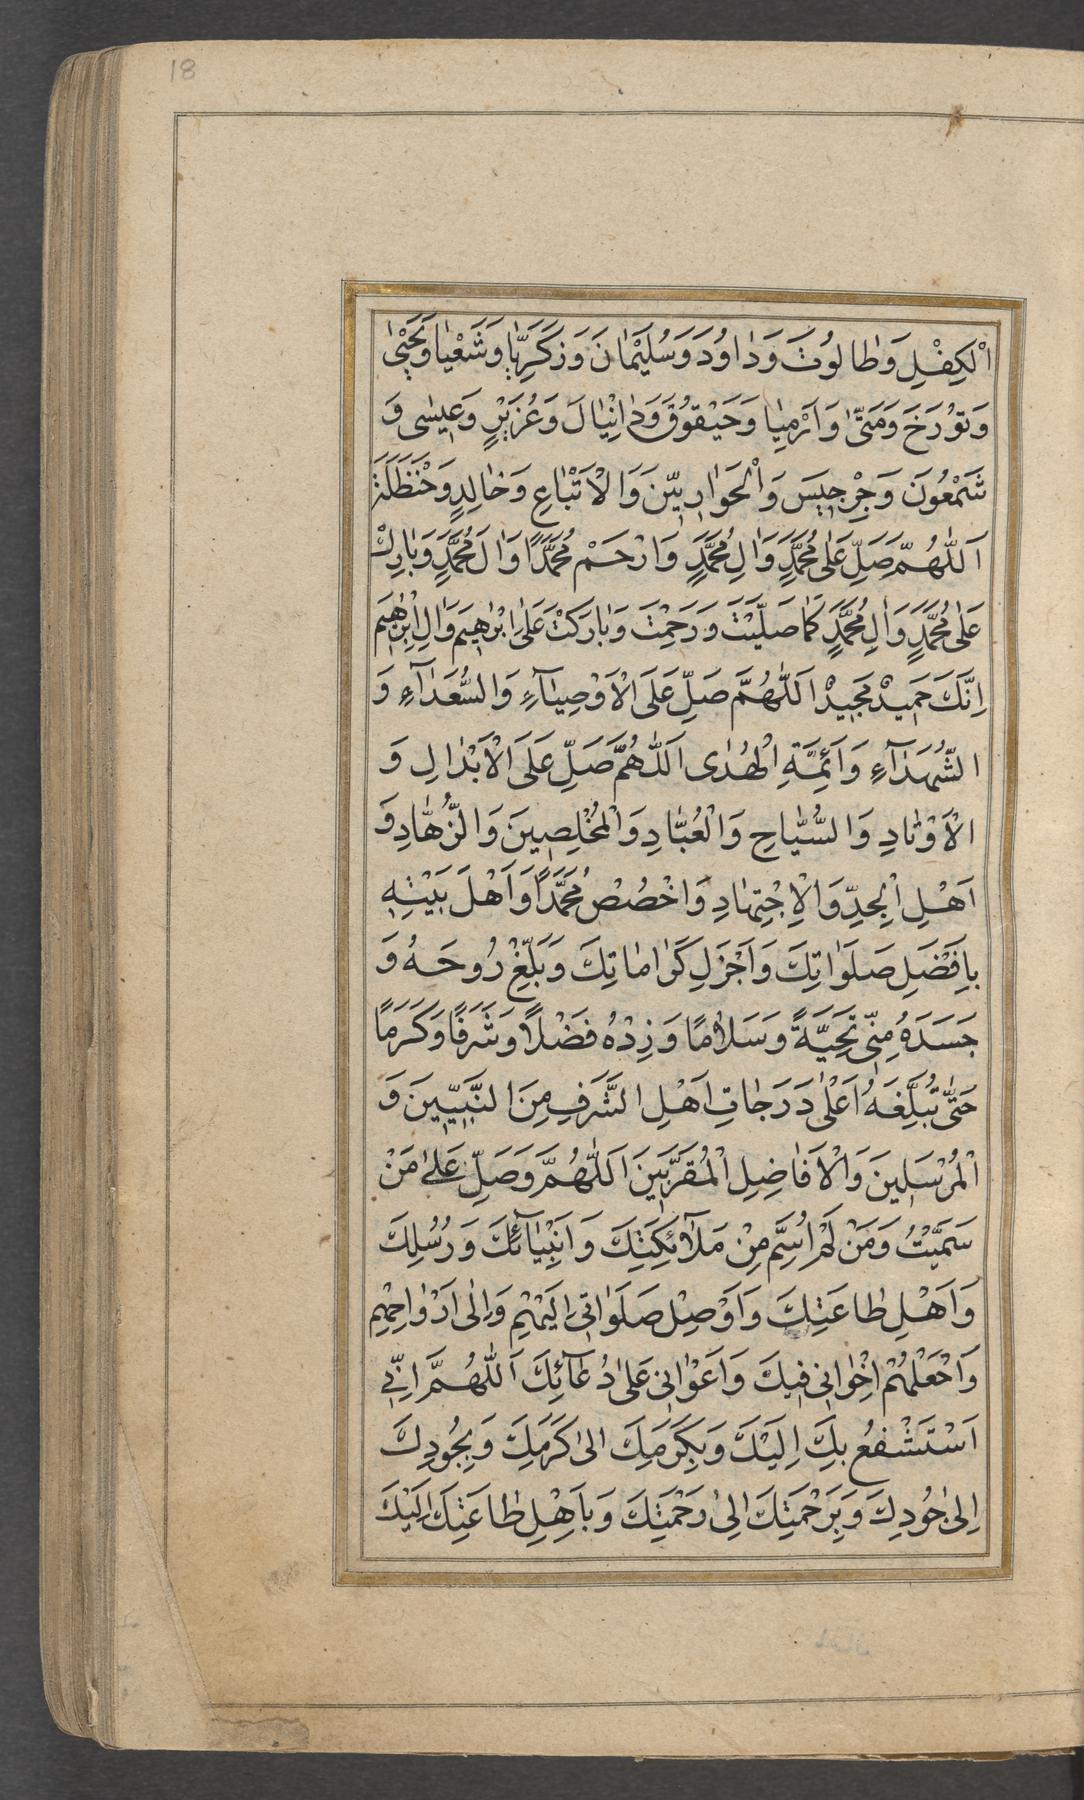 18
الْكِفْلِ وَطٰالُوتَ وَدٰاوُدَ وَسُلَيْمٰانَ وَزَكَرِيّٰا وَشَعْيٰا وَيَحْيىٰ
وَتُوْرَخَ وَمَتّىٰ وَاَرْمِيٰا وَحَيْقُوقَ وَدٰانِيٰالَ وَعُزَيْرٍ وَعِيسٰى وَ
شَمْعُونَ وَجِرْجِيسَ وَالْحَوٰارِيّينَ وَالْاَتْبٰاعِ وَخٰالِدٍ وَحَنْظَلَةَ
اَللّٰهُمَّ صَلِّ عَلىٰ مُحَمَّدٍ وَاٰلِ مُحَمَّدٍ وَارْحَمْ مُحَمَّدًا وَاٰلَ مُحَمَّدٍ وَبٰارِكْ
عَلىٰ مُحَمَّدٍ وَاٰلِ مُحَمَّدٍ كَمٰا صَلَّيْتَ وَرَحِمْتَ وَبٰارَكْتَ عَلىٰ اِبْرٰاهِيمَ وَاٰلِ اِبْرٰهِيمَ
اِنَّكَ حَمِيدٌ مَجِيدٌ اَللّٰهُمَّ صَلِّ عَلَى الْاَوْصِيٰآءِ وَالسُّعَدٰآءِ وَ
الشُّهَدٰآءِ وَاَئِمَّةِ الْهُدٰى اَللّٰهُمَّ صَلِّ عَلَى الْاَبْدٰالِ وَ
الْاَوْتٰادِ وَالسُّيّٰاحِ وَالْعُبّٰادِ وَالْمُخْلِصِينَ وَالزُّهّٰادِ وَ
اَهْلِ الْجِدِّ وَالْاِجْتِهٰادِ وَاخْصُصْ مُحَمَّدًا وَاَهْلَ بَيْتِهِ
بِاَفْضَلِ صَلَوٰاتِكَ وَاَجْزَلِ كَرٰامٰاتِكَ وَبَلِّغْ رُوحَهُ وَ
جَسَدَهُ مِنّى تَحِيَّةً وَسَلٰامًا وَزِدْهُ فَضْلًا وَشَرَفًا وَكَرَمًا
حَتّٰى تُبَلِّغَهُ اَعْلىٰ دَرَجٰاتِ اَهْلِ الشَّرَفِ مِنَ النَّبِيّينَ وَ
الْمُرْسَلِينَ وَالْاَفٰاضِلِ الْمُقَرَّبِينَ اَللّٰهُمَّ وَصَلِّ عَلىٰ مَنْ
سَمَّيْتُ وَمَنْ لَمْ اُسَمِّ مِنْ مَلٰآئِكَتِكَ وَاَنْبِيٰآئِكَ وَرُسُلِكَ
وَاَهْلِ طٰاعَتِكَ وَاَوْصِلْ صَلَوٰاتِى اِلَيْهِمْ وَاِلٰى اَرْوٰاحِهِمْ
وَاجْعَلْهُمْ اِخْوٰانِى فِيكَ وَاَعْوٰانِى عَلىٰ دُعٰآئِكَ اَللّٰهُمَّ اِنِّى
اَسْتَشْفِعُ بِكَ اِلَيْكَ وَبِكَرَمِكَ اِلىٰ كَرَمِكَ وَبِجُودِكَ
اِلىٰ جُودِكَ وَبِرَحْمَتِكَ اِلىٰ رَحْمَتِكَ وَبِاَهْلِ طٰاعَتِكَ اِلَيْكَ